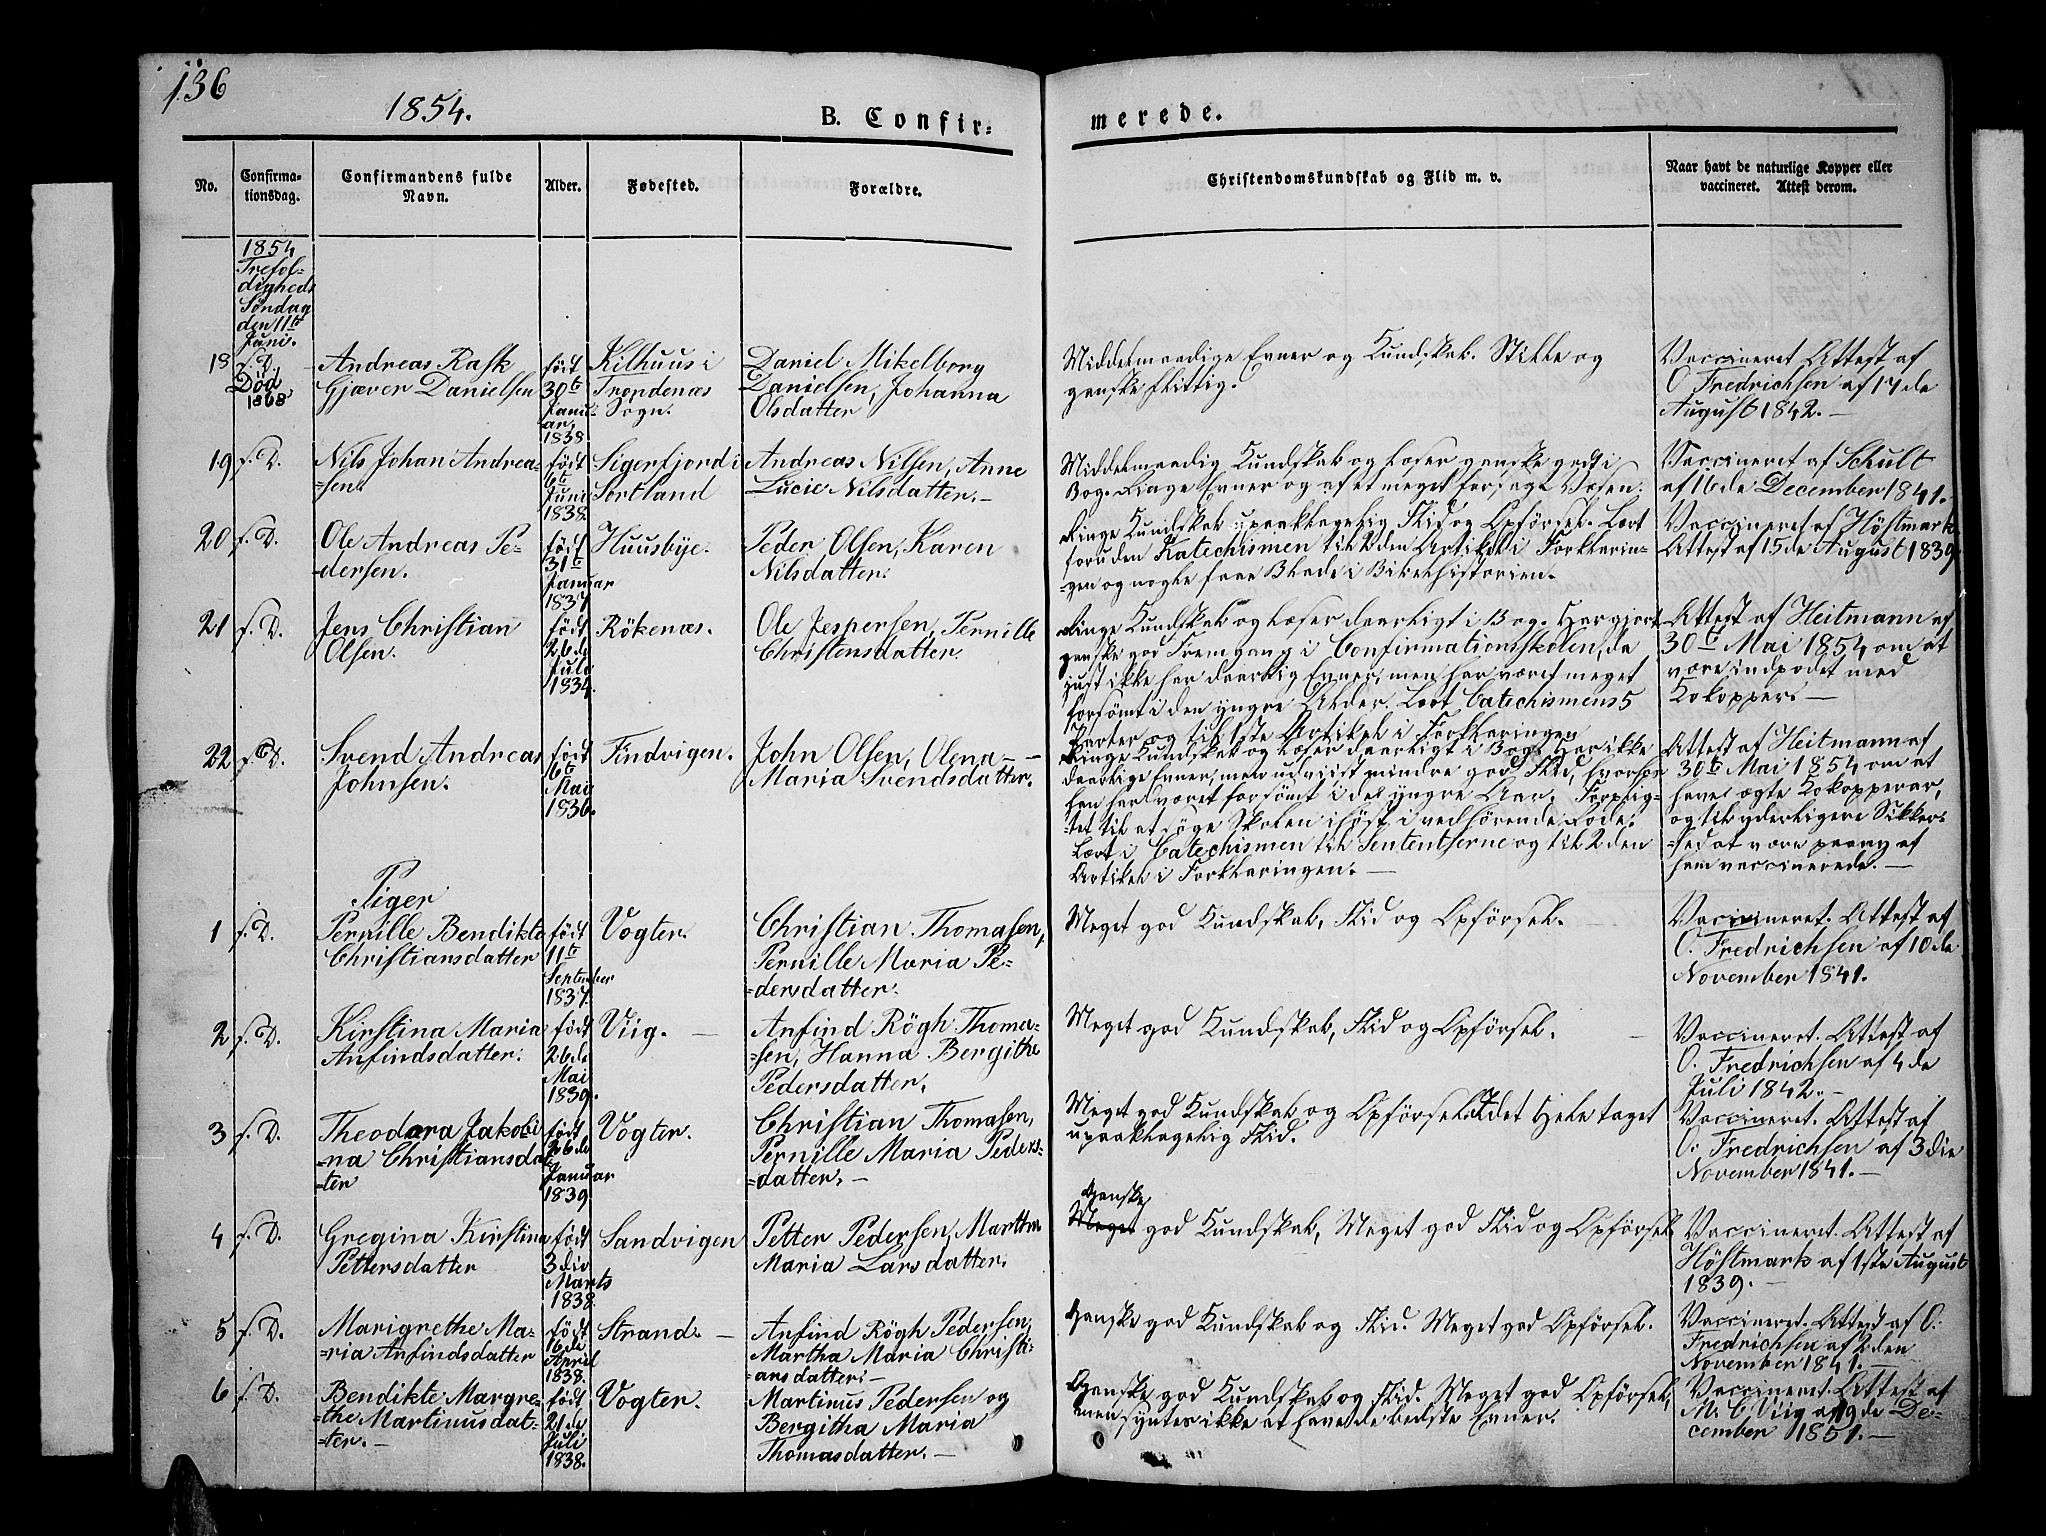 136
1854.
B. Confir-
merede.
No.
Confirma-
tionsdag.
Confirmandens fulde
Navn.
Alder.
Fødested.
Forældre.
Christendomskundskab og Flid m. v.
Naar havt de naturlige Kopper eller
vaccineret. Attest derom.
1854
Trefol-
digheds
Søndag
den 11te
Juni.
18
f. D.
Død
1868
Andreas Rask
Gjæver Danielsen
født
30te
Janu-
ar,
1838
Kilhuus i
Trondenæs
Sogn.
Daniel Mikelborg
Danielsen, Johanna
Olsdatter
Middelmaadige Evner og Kundskab. Stille og
ganske flittig.
Vaccineret Attest af
O. Fredrichsen af 17de
August 1842. —
19
f. D.
Nils Johan Andrea-
=sen.
født
6te
Juni
1838.
Sigerfjord i
Sortland
Andreas Nilsen, Anne
Lucie Nilsdatter. —
Middelmaadig Kundskab og læser ganske godt i
Bog. Ringe Evner og af et meget forsagt Væsen.
Vaccineret af Schult
af 16de December 1841.
20
f. D.
Ole Andreas Pe-
=dersen.
født
31te
Januar
1837
Huusbye.
Peder Olsen, Karen
Nilsdatter.
Ringe Kundskab upaaklagelig Flid og Opførsel. Lært
foruden Katechismen til 2den Artikel i Forklarin-
=gen og nogle faae Blade i Bibelhistorien.
Vaccineret af Höstmark
Attest af 15de August 1839.
21
f. D.
Jens Christian
Olsen.
født
26de
Juli
1834.
Rökenæs.
Ole Jespersen, Pernille
Christensdatter.
Ringe Kundskab og læser daarligt i Bog. Har gjort
ganske god Fremgang i Confirmationsskolen, da
just ikke har daarlig Evner, men har været meget
forsømt i den yngre Alder. Lært Catechismens 5
Parter og til 1ste Artikel i Forklaringen
Attest af Heitmann af
30te Mai 1854 om at
være indpodet med
Kokopper. —
22
f. D.
Svend Andreas
Johnsen.
født
6te
Mai
1836.
Findvigen.
John Olsen, Olena —
Maria Svendsdatter.
Ringe Kundskab og læser daarligt i Bog. Har ikke
daarlige Evner, men udviist mindre god Flid, hvorfor
han har været forsømt i de yngre Aar. Forplig-
=tet til at søge Skolen i høst i vedhørende Rode.
Lært i Catechismen til Sententserne og til 2den
Artikel i Forklaringen. —
Attest af Heitmann af
30te Mai 1854 om at
have ægte Kokopperar,
og til yderligere Sikker-
=hed at være paany af
ham vaccinerede. —
Piger
1
f. D.
Pernille Bendikte
Christiansdatter
født
11te
September
1837.
Vogter.
Christian Thomasen,
Pernille Maria Pe-
=dersdatter.
Meget god Kundskab, Flid og Opførsel.
Vaccineret. Attest af
O. Fredrichsen af 10de
November 1841.
2
f. D.
Kirstina Maria
Anfindsdatter.
født
26de
Mai
1839.
Viig. —
Anfind Rögh Thoma-
=sen, Hanna Bergithe
Pedersdatter.
Meget god Kundskab, Flid og Opførsel.
Vaccineret. Attest af
O. Fredrichsen af 4de
Juli 1842. —
3
f. D.
Theodora Jakobi-
=na Christiansdat-
=ter
født
26de
Januar
1839
Vogter.
Christian Thomasen,
Pernille Maria Peders-
=datter. —
Meget god Kundskab og Opførsel. I det Hele taget
upaaklagelig Flid.
Vaccineret. Attest af
O. Fredrichsen af 3die
November 1841. —
4
f. D.
Gregina Kirstina
Pettersdatter
født
3die
Marts
1838.
Sandvigen
Petter Pedersen, Martha
Maria Larsdatter.
Ganske
Meget god Kundskab, Meget god Flid og Opførsel
Vaccineret. Attest af
Höstmark af 1ste August
1839. —
5
f. D.
Marigrethe Ma-
=ria Anfindsdatter
født
16de
April
1838.
Strand. —
Anfind Rögh Pedersen,
Martha Maria Christi-
=ansdatter. —
Ganske god Kundskab og Flid. Meget god Opførsel.
Vaccineret. Attest af O.
Fredrichsen af 2den
November 1841. —
6
f. D.
Bendikte Margre-
=the Martinusdat-
=ter. —
født
21de
Juli
1838.
Vogter.
Martinus Pedersen og
Bergitha Maria
Thomasdatter. —
Ganske god Kundskab og Flid. Meget god Opførsel,
men syntes ikke at have de bedste Evner.
Vaccineret. Attest af
M. C. Viig af 19de De-
cember 1851. —